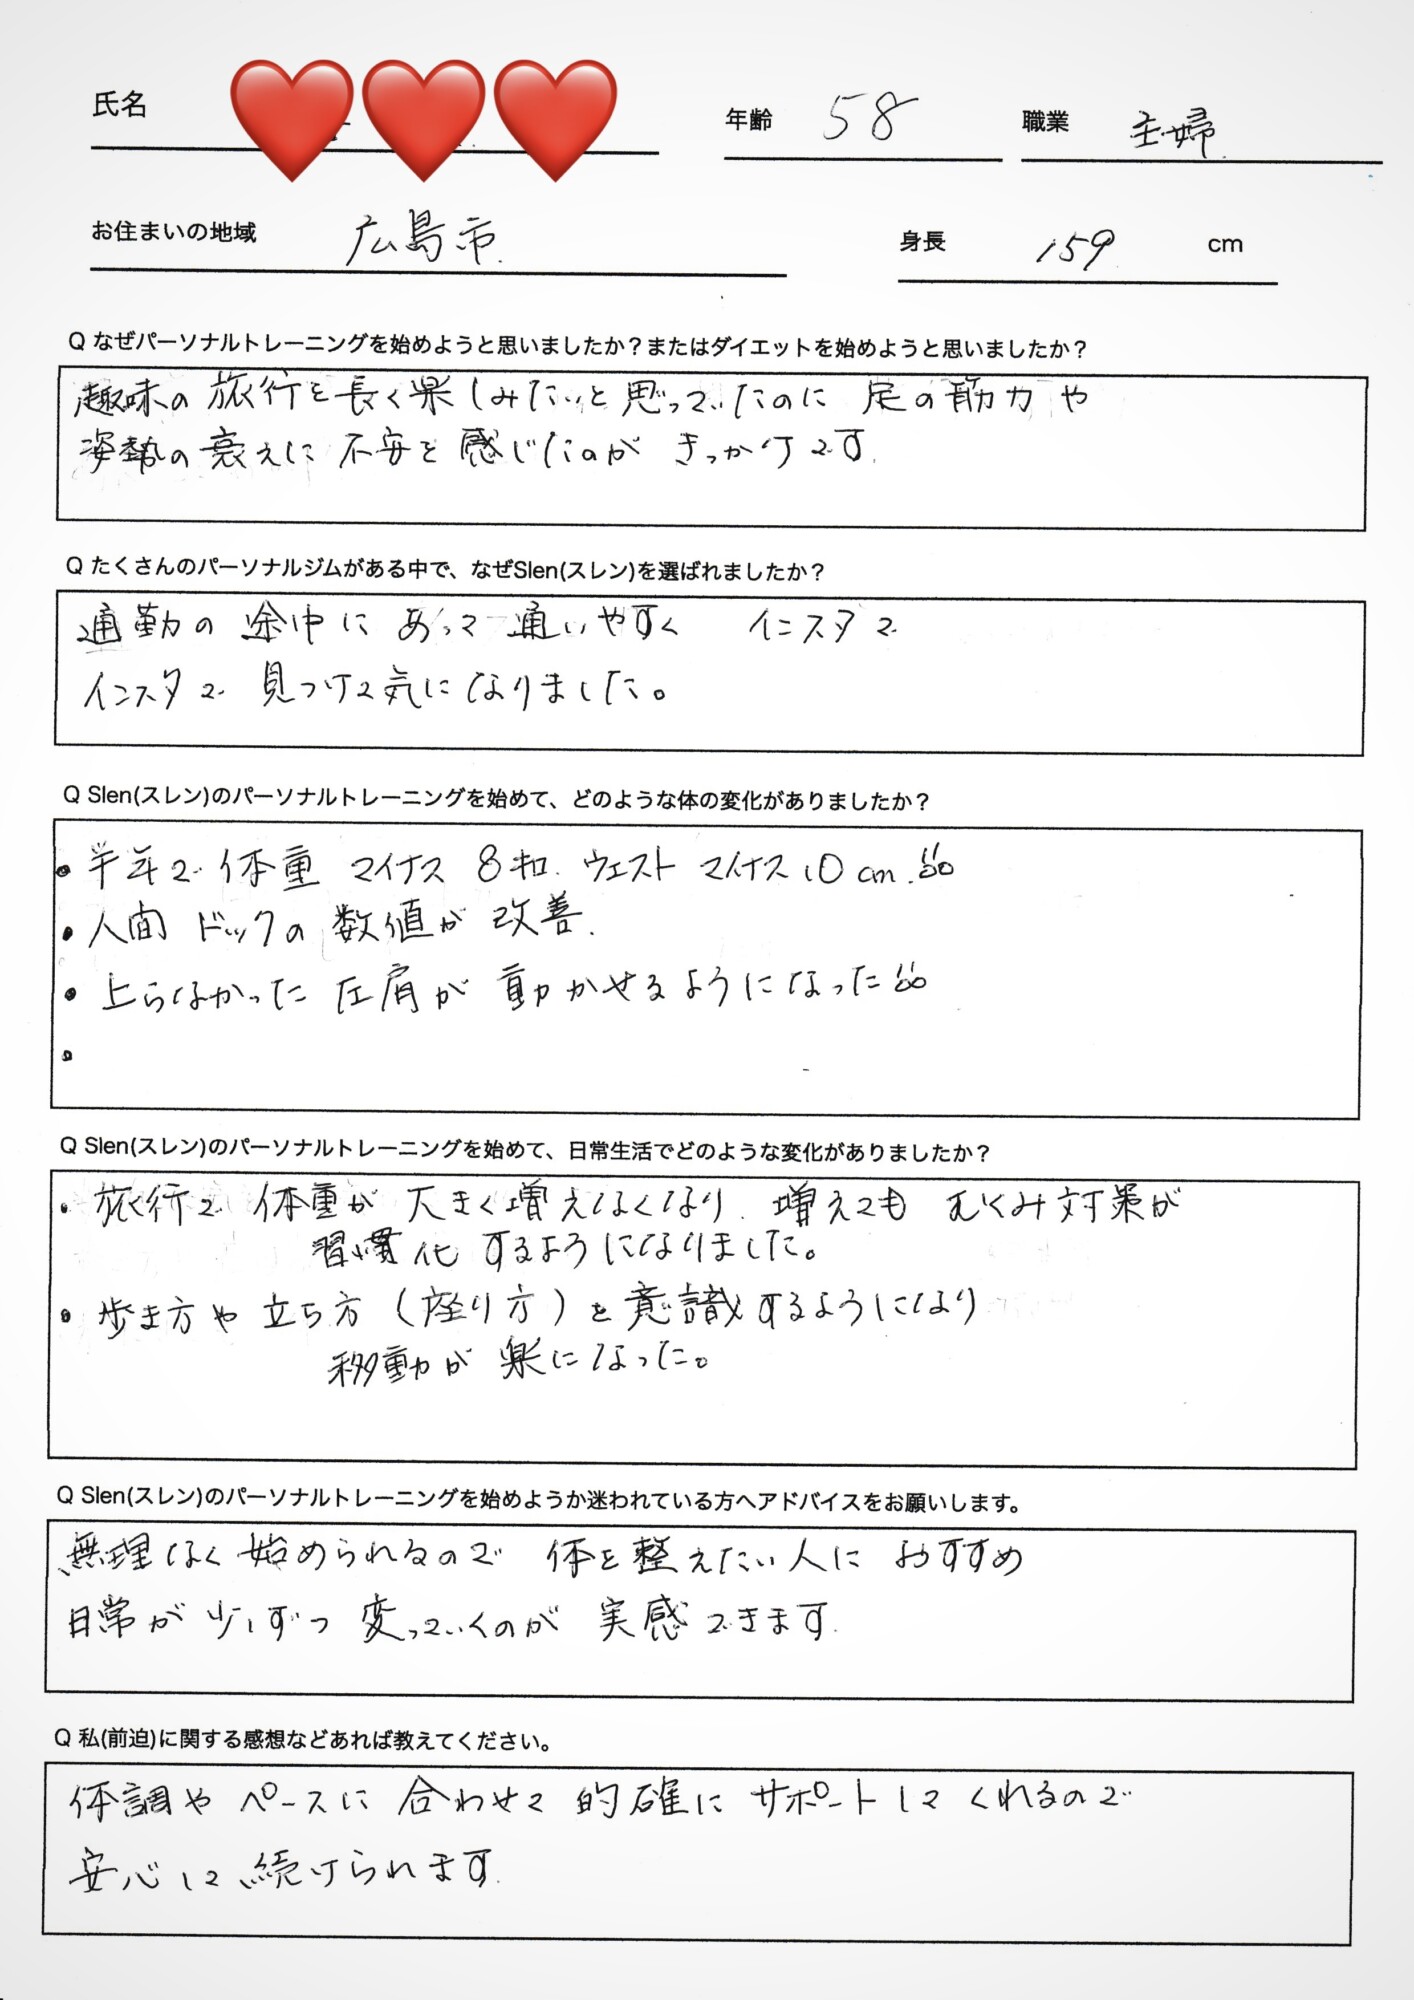 氏名
年齢 58
職業 主婦
お住まいの地域 広島市
身長 159 cm
Q なぜパーソナルトレーニングを始めようと思いましたか？またはダイエットを始めようと思いましたか？
趣味の旅行を長く楽しみたいと思っていたのに 足の筋力や
姿勢の衰えに不安を感じたのが きっかけです
Q たくさんのパーソナルジムがある中で、なぜSlen(スレン)を選ばれましたか？
通勤の途中にあって通いやすく インスタで
インスタで 見つけて気になりました。
Q Slen(スレン)のパーソナルトレーニングを始めて、どのような体の変化がありましたか？
・半年で体重 マイナス 8キロ. ウェスト マイナス10cm.
・人間ドックの数値が改善.
・上らなかった左肩が動かせるようになった
・
Q Slen(スレン)のパーソナルトレーニングを始めて、日常生活でどのような変化がありましたか？
・旅行で 体重が大きく増えなくなり. 増えても むくみ対策が
習慣化するようになりました。
・歩き方や立ち方（座り方）を意識するようになり
移動が楽になった。
Q Slen(スレン)のパーソナルトレーニングを始めようか迷われている方へアドバイスをお願いします。
無理なく始められるので 体を整えたい人に おすすめ
日常が少しずつ変っていくのが 実感できます.
Q 私(前迫)に関する感想などあれば教えてください。
体調やペースに合わせて的確にサポートしてくれるので
安心して続けられます.